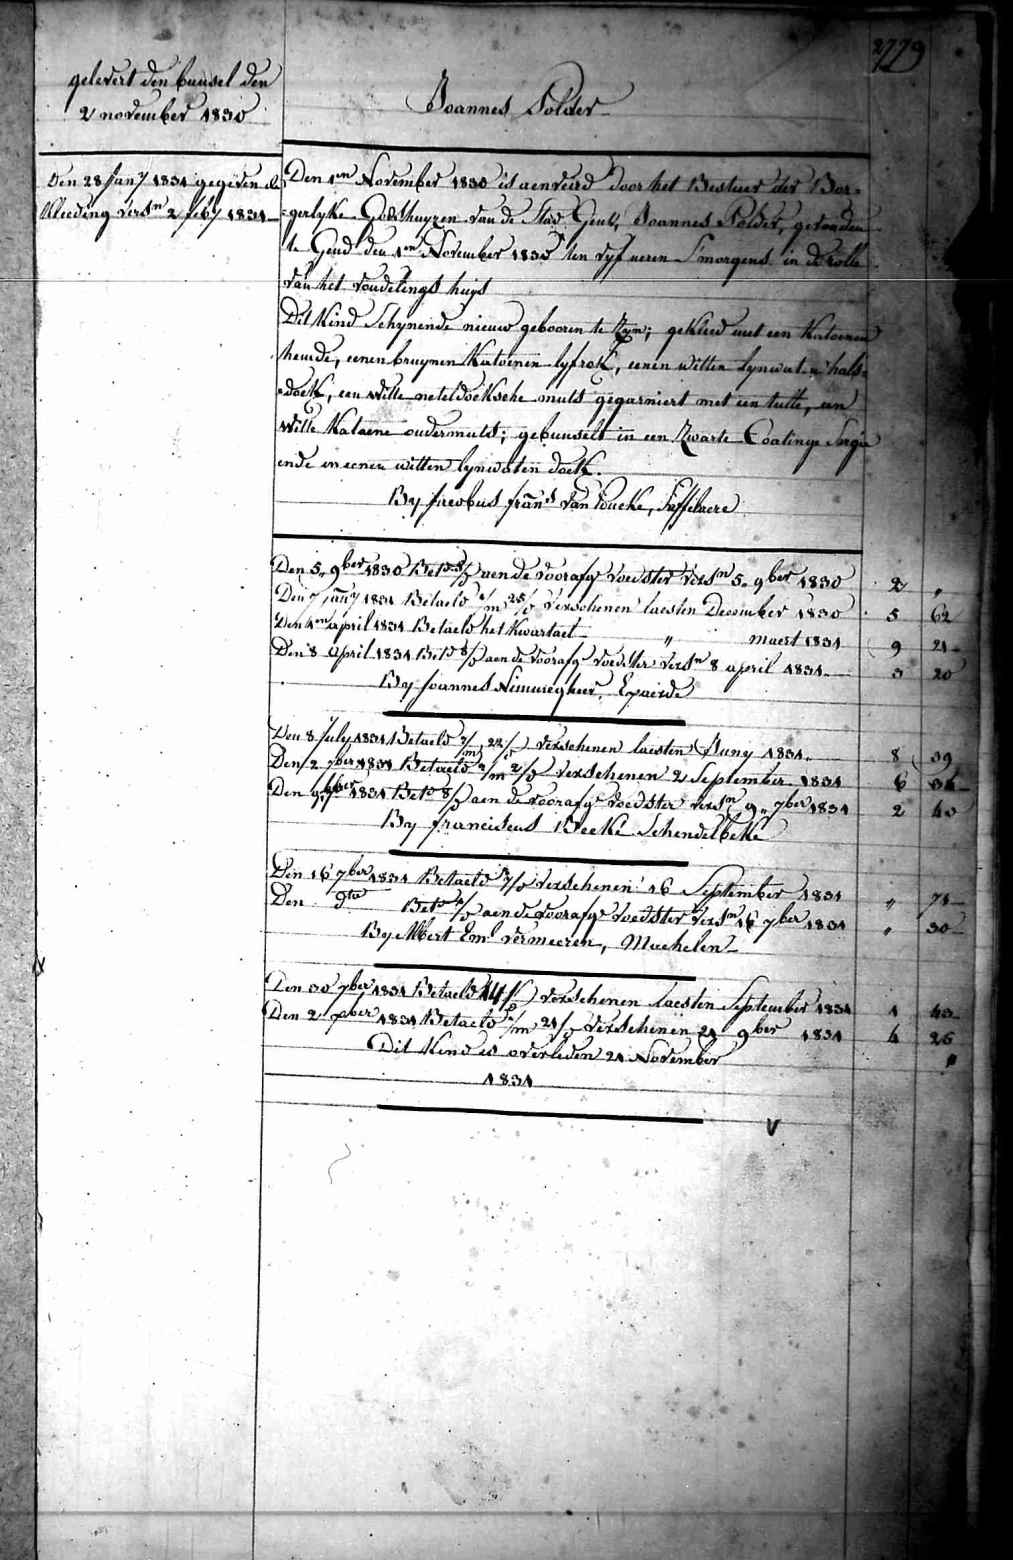 2779
gelevert den bunsel den
2 november 1830
Joannes Polder
Den 28 Jany 1831 gegeven de
Kleeding versn 2 feby 1831
Den 1en November 1830 is aenveird door het Bestuer der Bor=
=gerlyke Godshuyzen van de Stad Gent, Joannes Polder, gevonden
te Gend den 1en November 1830 ten vyf ueren Smorgens in de rolle
van het vondelings huys
Dit Kind Schynende nieuw gebooren te Zyn; gekleed met een Katoenen
hemde, eenen bruynen Katoenen lyfrok, eenen witten lynwaten hals=
=doek, een witte neteldoeksche muts gegarniert met een tulle, een
witte Katoene ondermuts; gebunselt in een Zwarte Coatinge Sargie
ende in eenen witten lynwaten doek.
By Jacobus frans van Poucke, Saffelaere
Den 5,, 9ber 1830 Bet. aen de voorafge voedster versn 5,, 9ber 1830 2 ,,
Den 7 jany 1831 Betaeld 1/m 25/ Verschenen laesten December 1830 5 62
Den 1en april 1831 Betaeld het Kwartael ,, maert 1831 9 21
Den 8 april 1831 Bet. 8/ aen de voorafge voedster versn 8 april 1831 3 20
By Joannes Nimmegheer, Exaerde
Den 8 July 1831 Betaeld 2/m 22/ verschenen laesten Juny 1831. 8 39
Den 2 7ber 1831 Betaeld 2/m 2/ verschenen 2 September 1831 6 36
Den 9,, 7ber 1831 Bet. 8/ aen de voorafge voedster versn 9,, 7ber 1831 2 40
By franciscus Beeke Schendelbeke
Den 16 7ber 1831 Betaeld 7/ verschenen 16 September 1831 ,, 71
Den dto Bet. aen de voorafge voedster versn 16 7ber 1831 ,, 30
By Albert Em. Vermeeren, Muchelen
Den 30 7ber 1831 Betaeld 14/ verschenen laesten September 1831 1 43
Den 2 xber 1831 Betaeld 1/m 21/ verschenen 21 9ber 1831 4 26
Dit Kind is overleden 21 November ,,
1831
V